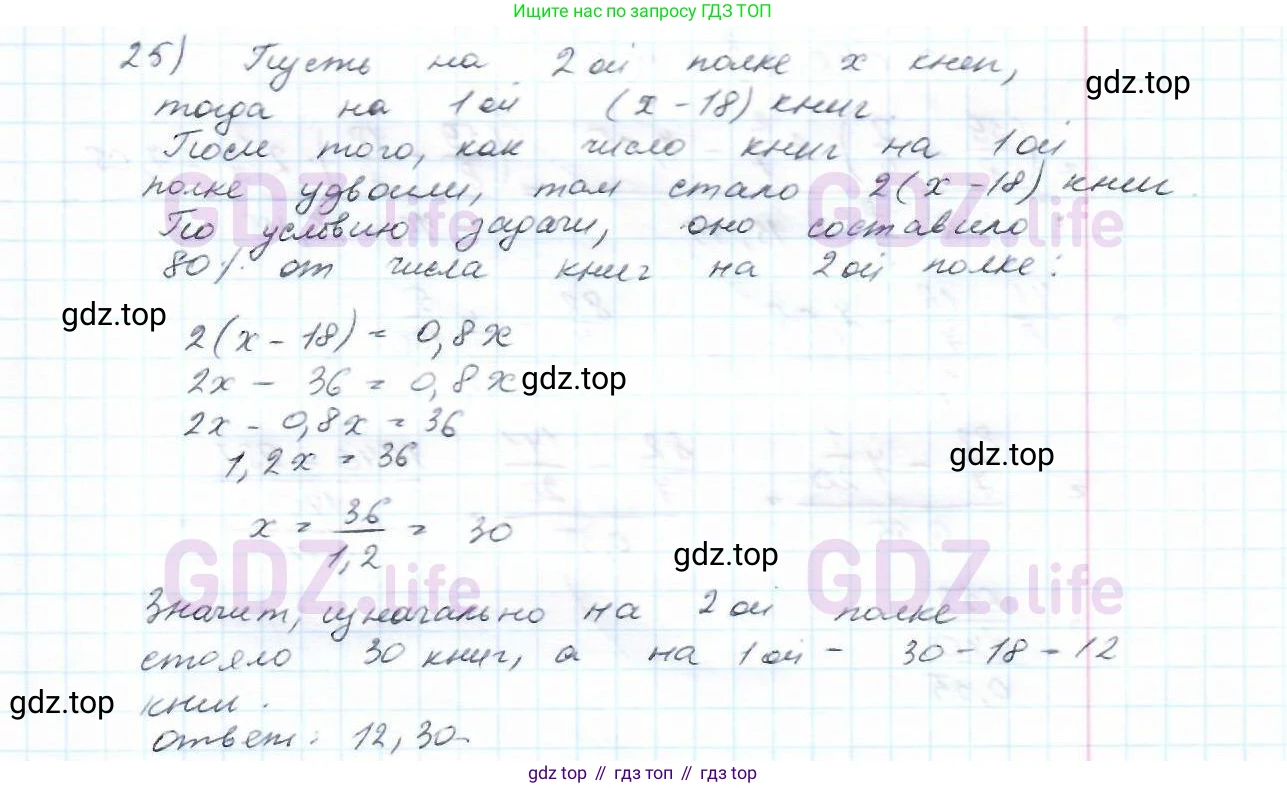 Ищите нас по запросу ГДЗ ТОП
25) Пусть на 2ой полке x книг,
gdz.top
тогда на 1ой (x - 18) книг
После того, как число книг на 1ой
полке удвоили, там стало 2(x - 18) книг.
GDZ.life GDZ.life
По условию задачи, оно составило
80% от числа книг на 2ой полке:
gdz.top
2(x - 18) = 0,8x
2x - 36 = 0,8x
gdz.top
2x - 0,8x = 36
1,2x = 36
gdz.top
x = 36/1,2 = 30
gdz.top
GDZ.life GDZ.life
Значит, изначально на 2ой полке
стояло 30 книг, а на 1ой - 30 - 18 = 12
gdz.top
книг.
Ответ: 12, 30.
gdz top // гдз топ // gdz top